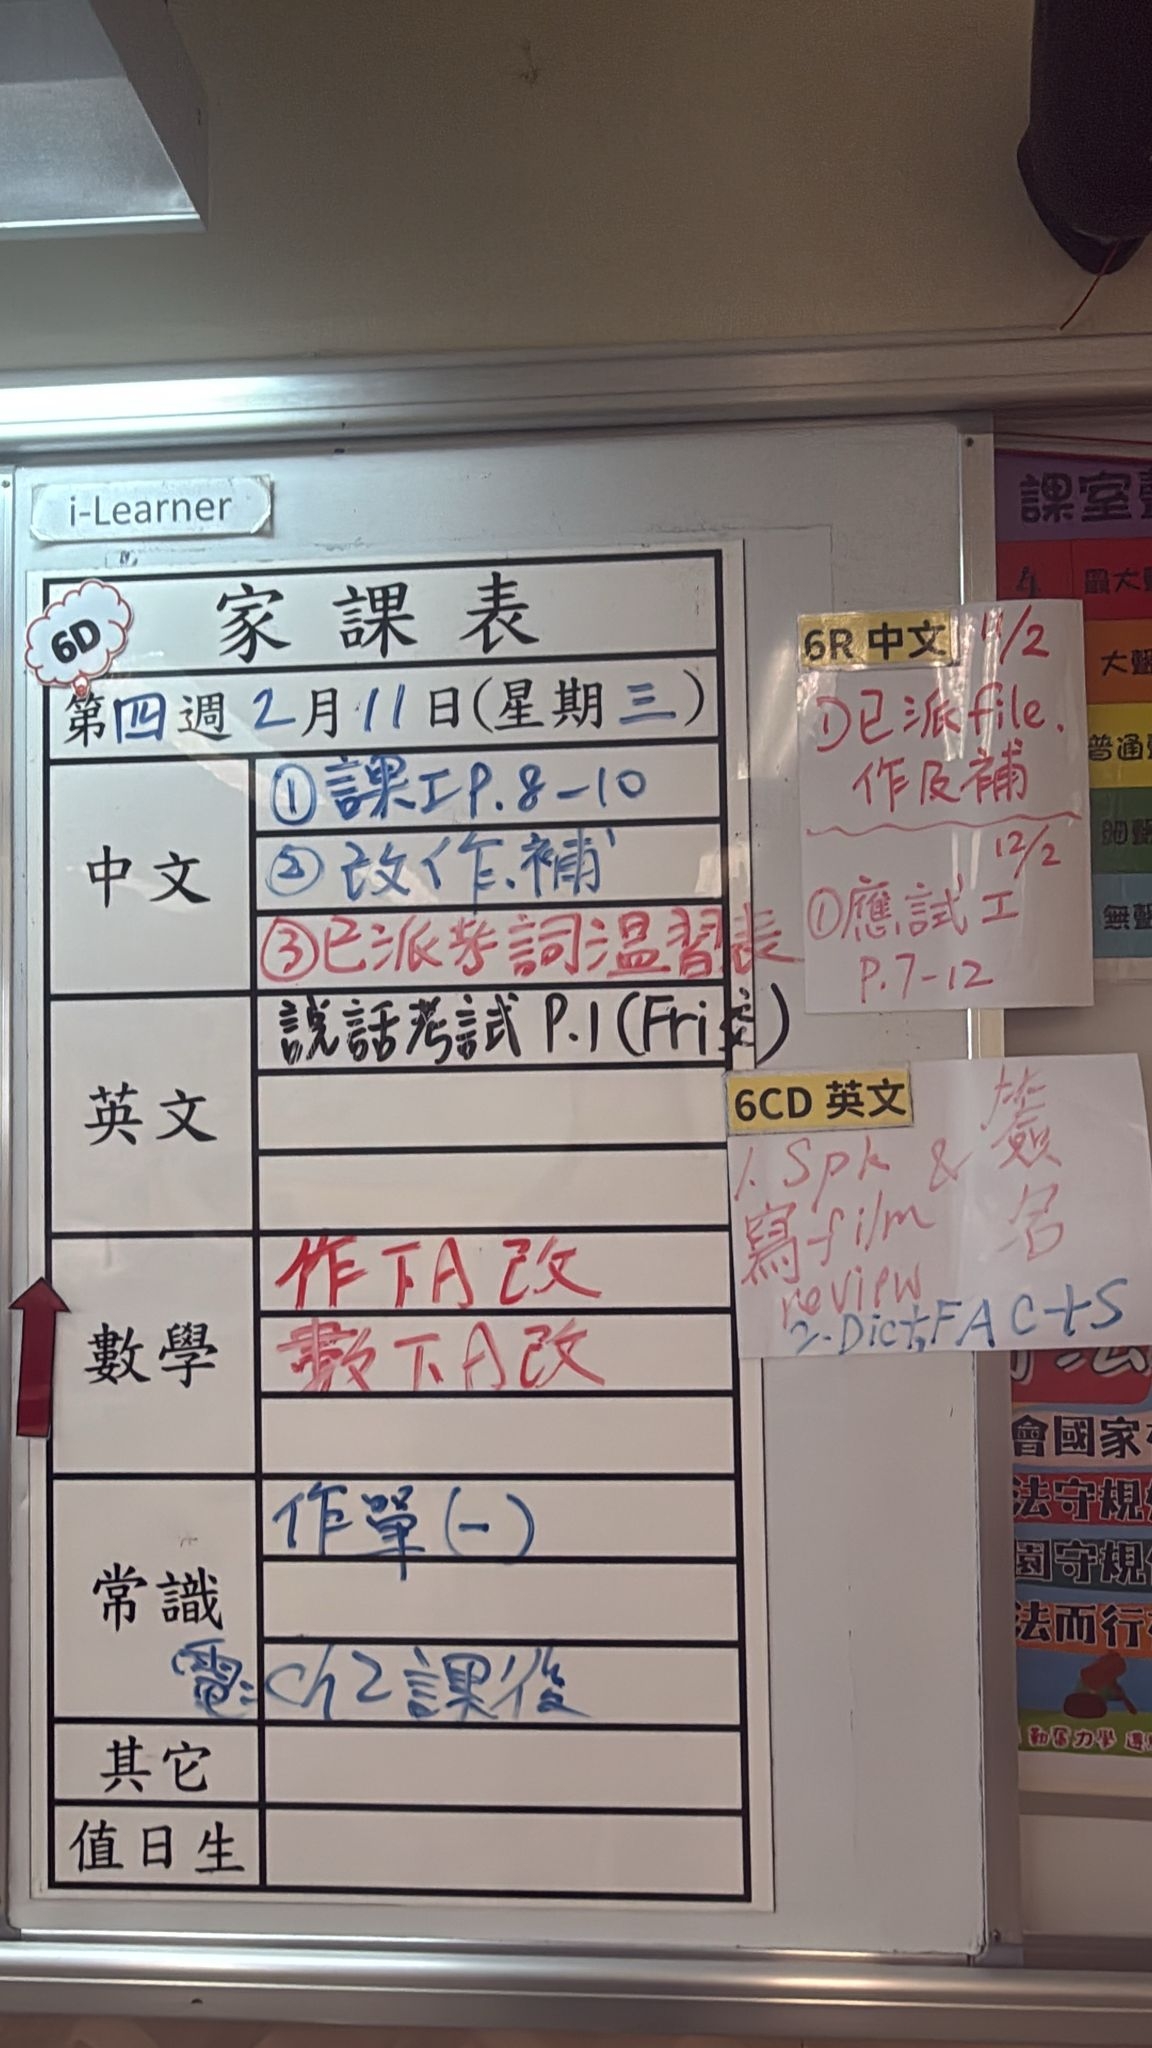 i-Learner
6D
家課表
第四週2月11日(星期三)
中文
①課工P.8-10
②改作、補
③已派考詞溫習表
英文
說話考試 P.1 (Fri交)
數學
作下A改
數下A改
常識
作單(一)
電: Ch2課後
其它
值日生
6R 中文 11/2
①已派file.
作及補
12/2
①應試工
P.7-12
6CD 英文
1. Spk & 簽名
寫film
review
2. Dict, FACTS
課室
4
最大
大聲
普通
細聲
無聲
會國家
法守規
園守規
法而行
勤奮力學